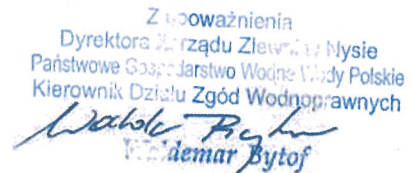 Z upoważnienia
Dyrektora Zarządu Zlewni w Nysie
Państwowe Gospodarstwo Wodne Wody Polskie
Kierownik Działu Zgód Wodnoprawnych
Waldemar Bytof